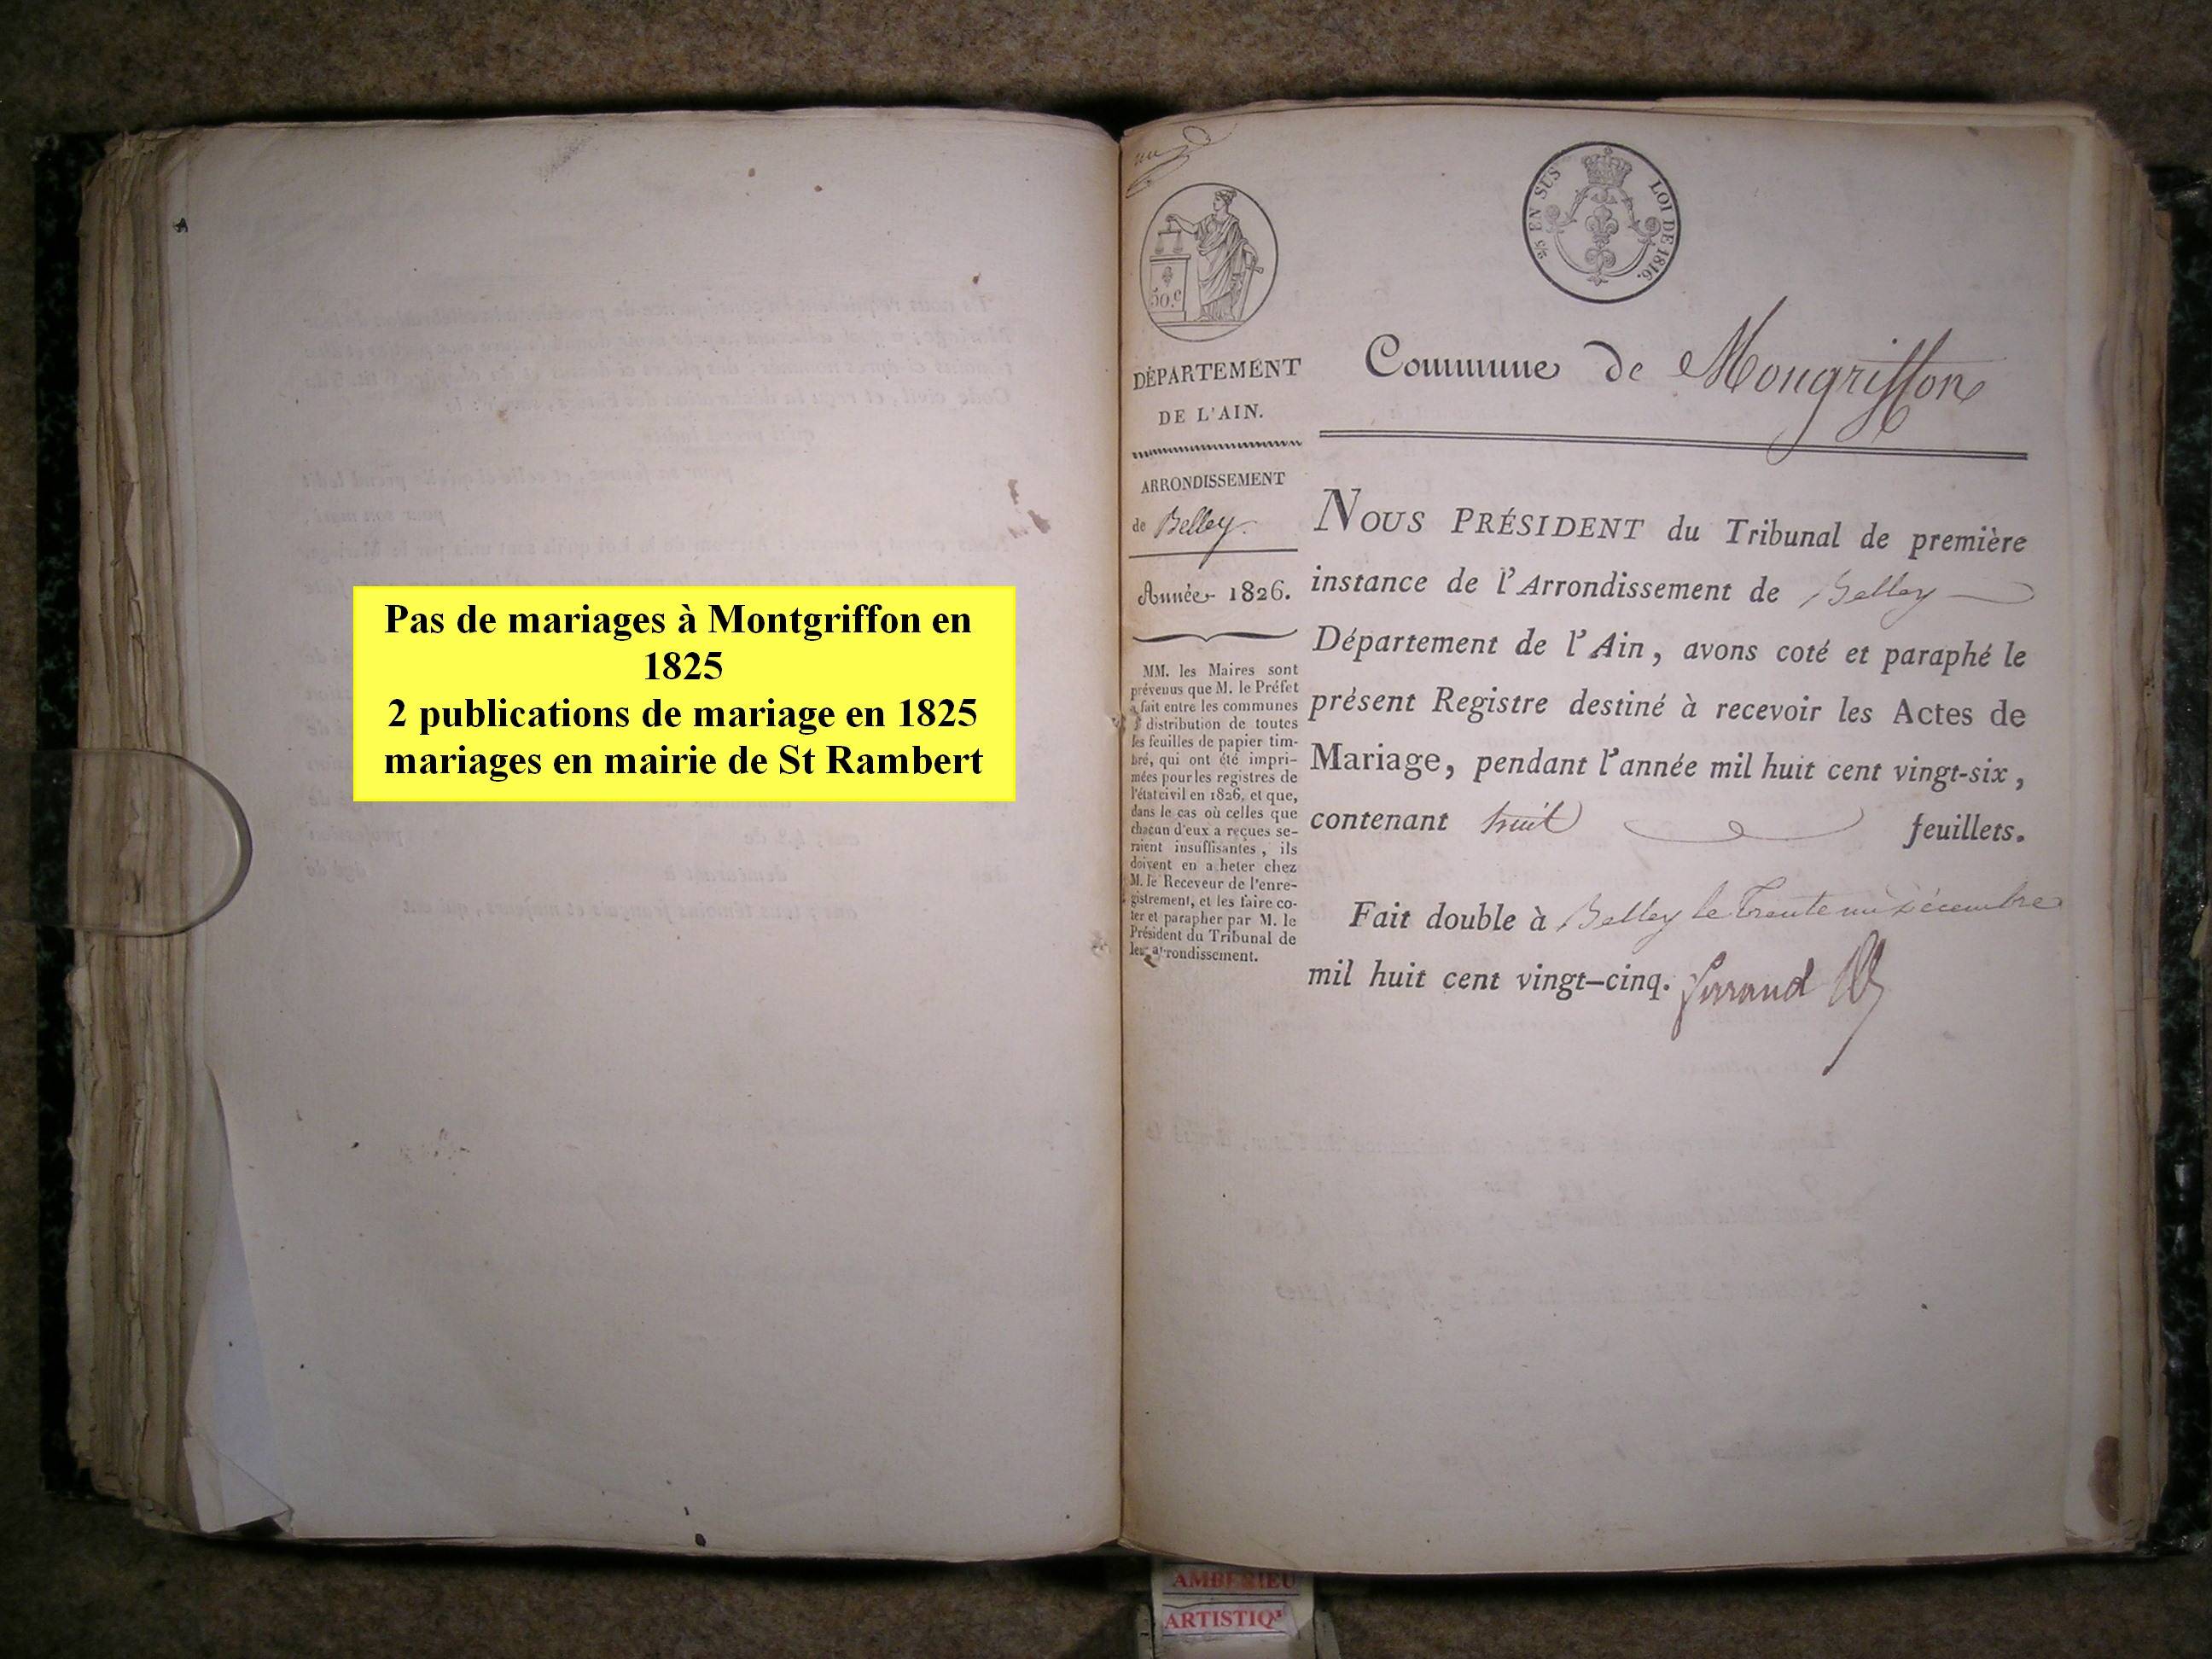 Pas de mariages à Montgriffon en
1825
2 publications de mariage en 1825
mariages en mairie de St Rambert
50.c
DÉPARTEMENT
DE L'AIN.
ARRONDISSEMENT
de Belley
Année 1826.
MM. les Maires sont
prévenus que M. le Préfet
a fait entre les communes
distribution de toutes
les feuilles de papier tim-
bré, qui ont été impri-
mées pour les registres de
l'état civil en 1826, et que,
dans le cas où celles que
chacun d'eux a reçues se-
raient insuffisantes, ils
doivent en a heter chez
M. le Receveur de l'enre-
gistrement, et les faire co-
ter et parapher par M. le
Président du Tribunal de
leur arrondissement.
EN SUS
LOI DE 1816.
Commune de Mongriffon
NOUS PRÉSIDENT du Tribunal de première
instance de l'Arrondissement de Belley
Département de l'Ain, avons coté et paraphé le
présent Registre destiné à recevoir les Actes de
Mariage, pendant l'année mil huit cent vingt-six,
contenant huit feuillets.
Fait double à Belley le trente un décembre
mil huit cent vingt-cinq.
AMBERIEU
ARTISTIQ